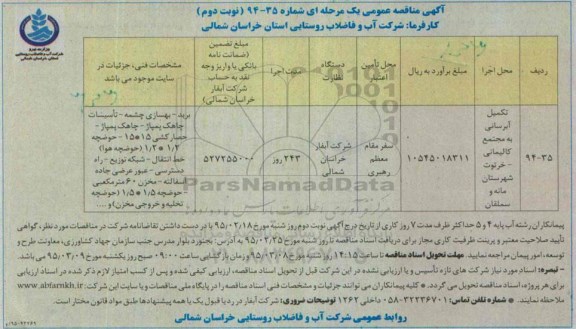 آگهی مناقصه عمومی یک مرحله ای شماره ۳۵-۹۴ (نوبت دوم)
کارفرما: شرکت آب و فاضلاب روستایی استان خراسان شمالی
ردیف
محل اجرا
مبلغ برآورد به ریال
محل تأمین اعتبار
دستگاه نظارت
مدت اجرا
مبلغ تضمین (ضمانت نامه بانکی یا واریز وجه نقد به حساب شرکت آبفار خراسان شمالی)
مشخصات فنی، جزئیات در سایت موجود می باشد
۹۴-۳۵
تکمیل آبرسانی به مجتمع کالیمانی - خرتوت شهرستان مانه و سملقان
۱۰۵۴۵۰۱۸۳۱۱
سفر مقام معظم رهبری
شرکت آبفار خراسان شمالی
۲۴۳ روز
۵۲۷۲۵۵۰۰۰
برید - بهسازی چشمه - تأسیسات
چاهک پمپاژ - چاهک پمپاژ -
حصارکشی ۱۵*۱۵ - حوضچه
۱/۲ * ۱/۲ (حوضچه هوا)
خط انتقال - شبکه توزیع - راه
دسترسی - عبور عرضی جاده
آسفالته - مخزن ۶۰ مترمکعبی
- حوضچه ۱/۵ * ۱/۵ (حوضچه
تخلیه و خروجی مخزن) و ....
ParsNamadData
پیمانکاران رشته آب پایه ۴ و ۵ حداکثر ظرف مدت ۷ روز کاری از تاریخ درج آگهی نوبت دوم روز شنبه مورخ ۹۵/۰۲/۱۸ با در دست داشتن تقاضانامه شرکت در مناقصات مورد نظر، گواهی
تأیید صلاحیت معتبر و پرینت ظرفیت کاری مجاز برای دریافت اسناد مناقصه تا روز شنبه مورخ ۹۵/۰۲/۲۵ به آدرس: بجنورد بلوار مدرس جنب سازمان جهاد کشاورزی، معاونت طرح و
توسعه، امور پیمان مراجعه نمایند. مهلت تحویل اسناد مناقصه تا ساعت ۱۴:۱۵ مورخ ۹۵/۰۳/۰۸ وزمان بازگشایی ساعت ۰۹:۰۰ صبح روز یکشنبه مورخ ۹۵/۰۳/۰۹ می باشد.
- تبصره: اسناد مورد نیاز شرکت های تازه تأسیس و یا ارزیابی نشده در این شرکت قبل از تحویل اسناد مناقصه، ارزیابی کیفی شده و پس از کسب امتیاز لازم ذکر شده در اسناد ارزیابی
برای هر پروژه، اسناد مناقصه تحویل می گردد. * کلیه پیمانکاران می توانند جزئیات و مشخصات فنی اسناد مناقصه را در پایگاه ملی مناقصات و یا سایت این شرکت: www.abfarnkh.ir
ملاحظه نمایند. * شماره تلفن تماس: ۳۲۲۳۶۷۰۱-۰۵۸ داخلی ۱۲۶۲ توضیحات ضروری: شرکت آبفار در رد یا قبول یک یا همه پیشنهادها طبق مواد قانون مختار است.
روابط عمومی شرکت آب و فاضلاب روستایی خراسان شمالی